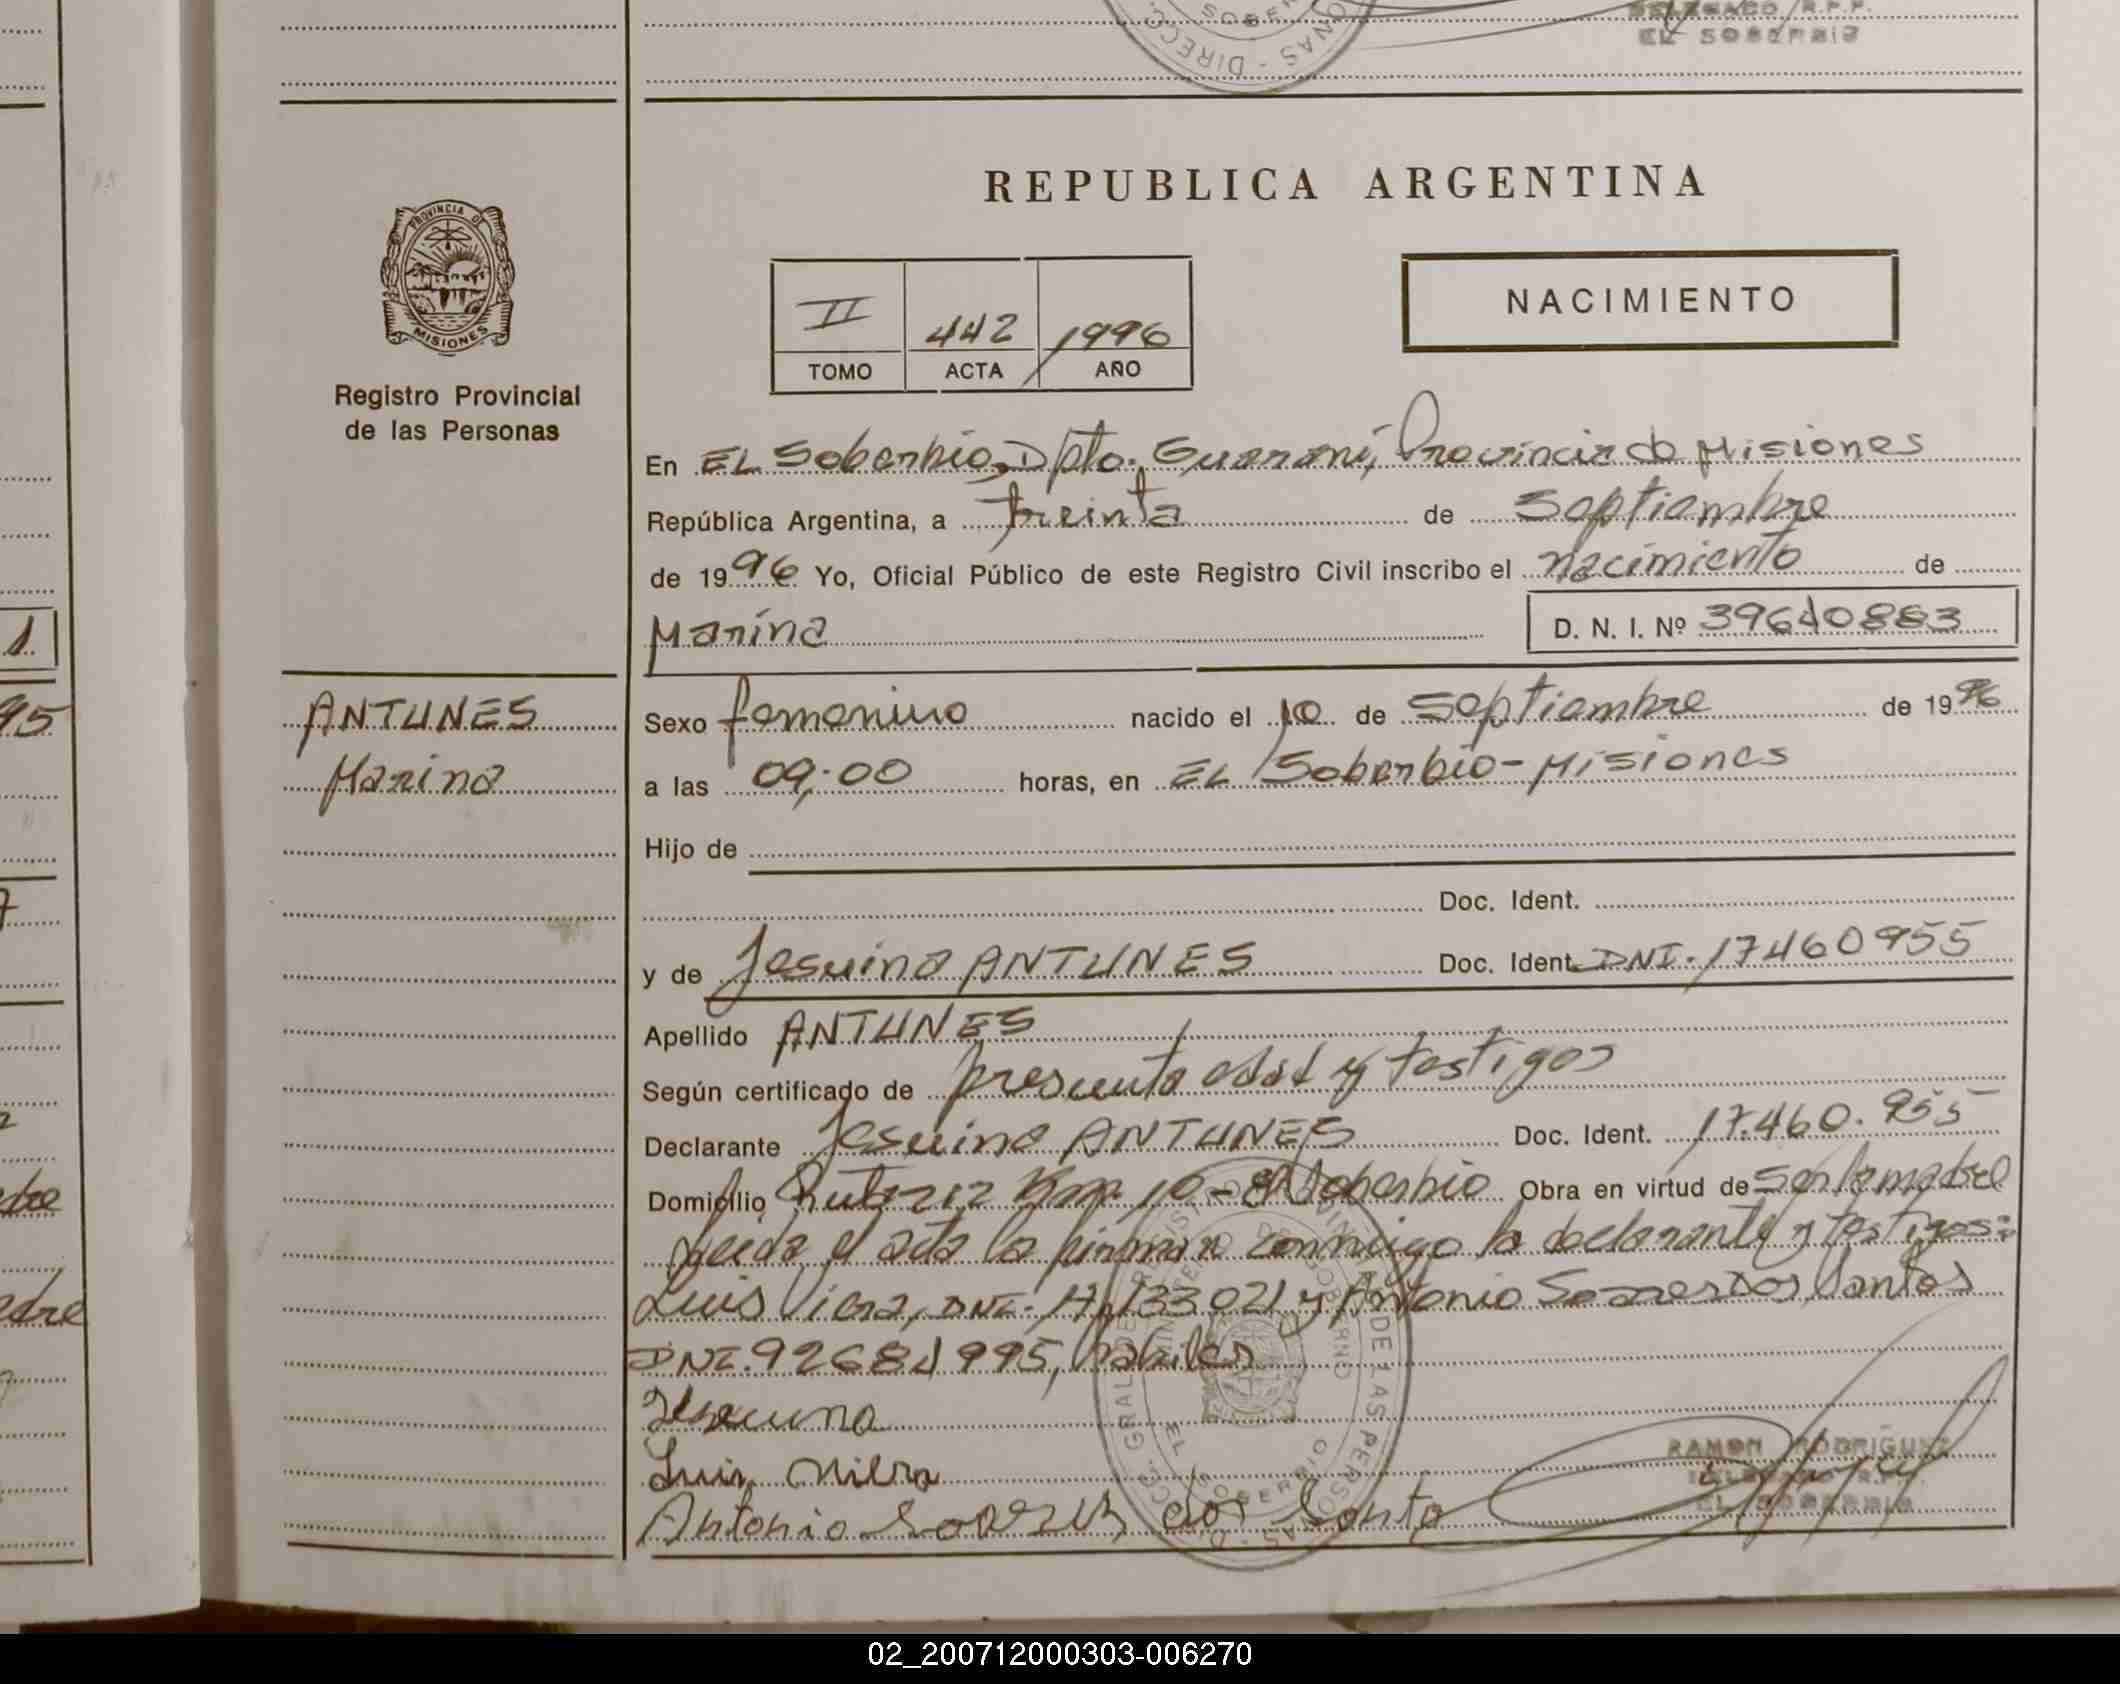 DELEGADO R.P.P.
EL SOBERBIO
REPUBLICA ARGENTINA
PROVINCIA DE
MISIONES
Registro Provincial
de las Personas
II 442 1996
TOMO ACTA AÑO
NACIMIENTO
En EL Soberbio, Dpto. Guaraní, Provincia de Misiones
República Argentina, a treinta de Septiembre
de 1996 Yo, Oficial Público de este Registro Civil inscribo el nacimiento de
Marina D. N. I. Nº 39640883
ANTUNES
Marina
Sexo femenino nacido el 10 de Septiembre de 1996
a las 09:00 horas, en EL Soberbio - Misiones
Hijo de
Doc. Ident.
y de Jesuina ANTUNES Doc. Ident. DNI. 17460955
Apellido ANTUNES
Según certificado de presunta edad y testigos
Declarante Jesuina ANTUNES Doc. Ident. 17.460.955
Domicilio Km. 10 - El Soberbio Obra en virtud de ser la madre
Leida el acta la firman conmigo la declarante y testigos:
Luis Viera, DNI. y Antonio Soares Dos Santos
DNI. 92681995, habiles
Luis
Antonio Soares dos Santo
RAMON RODRIGUEZ
DELEGADO R.P.P.
EL SOBERBIO
02_200712000303-006270